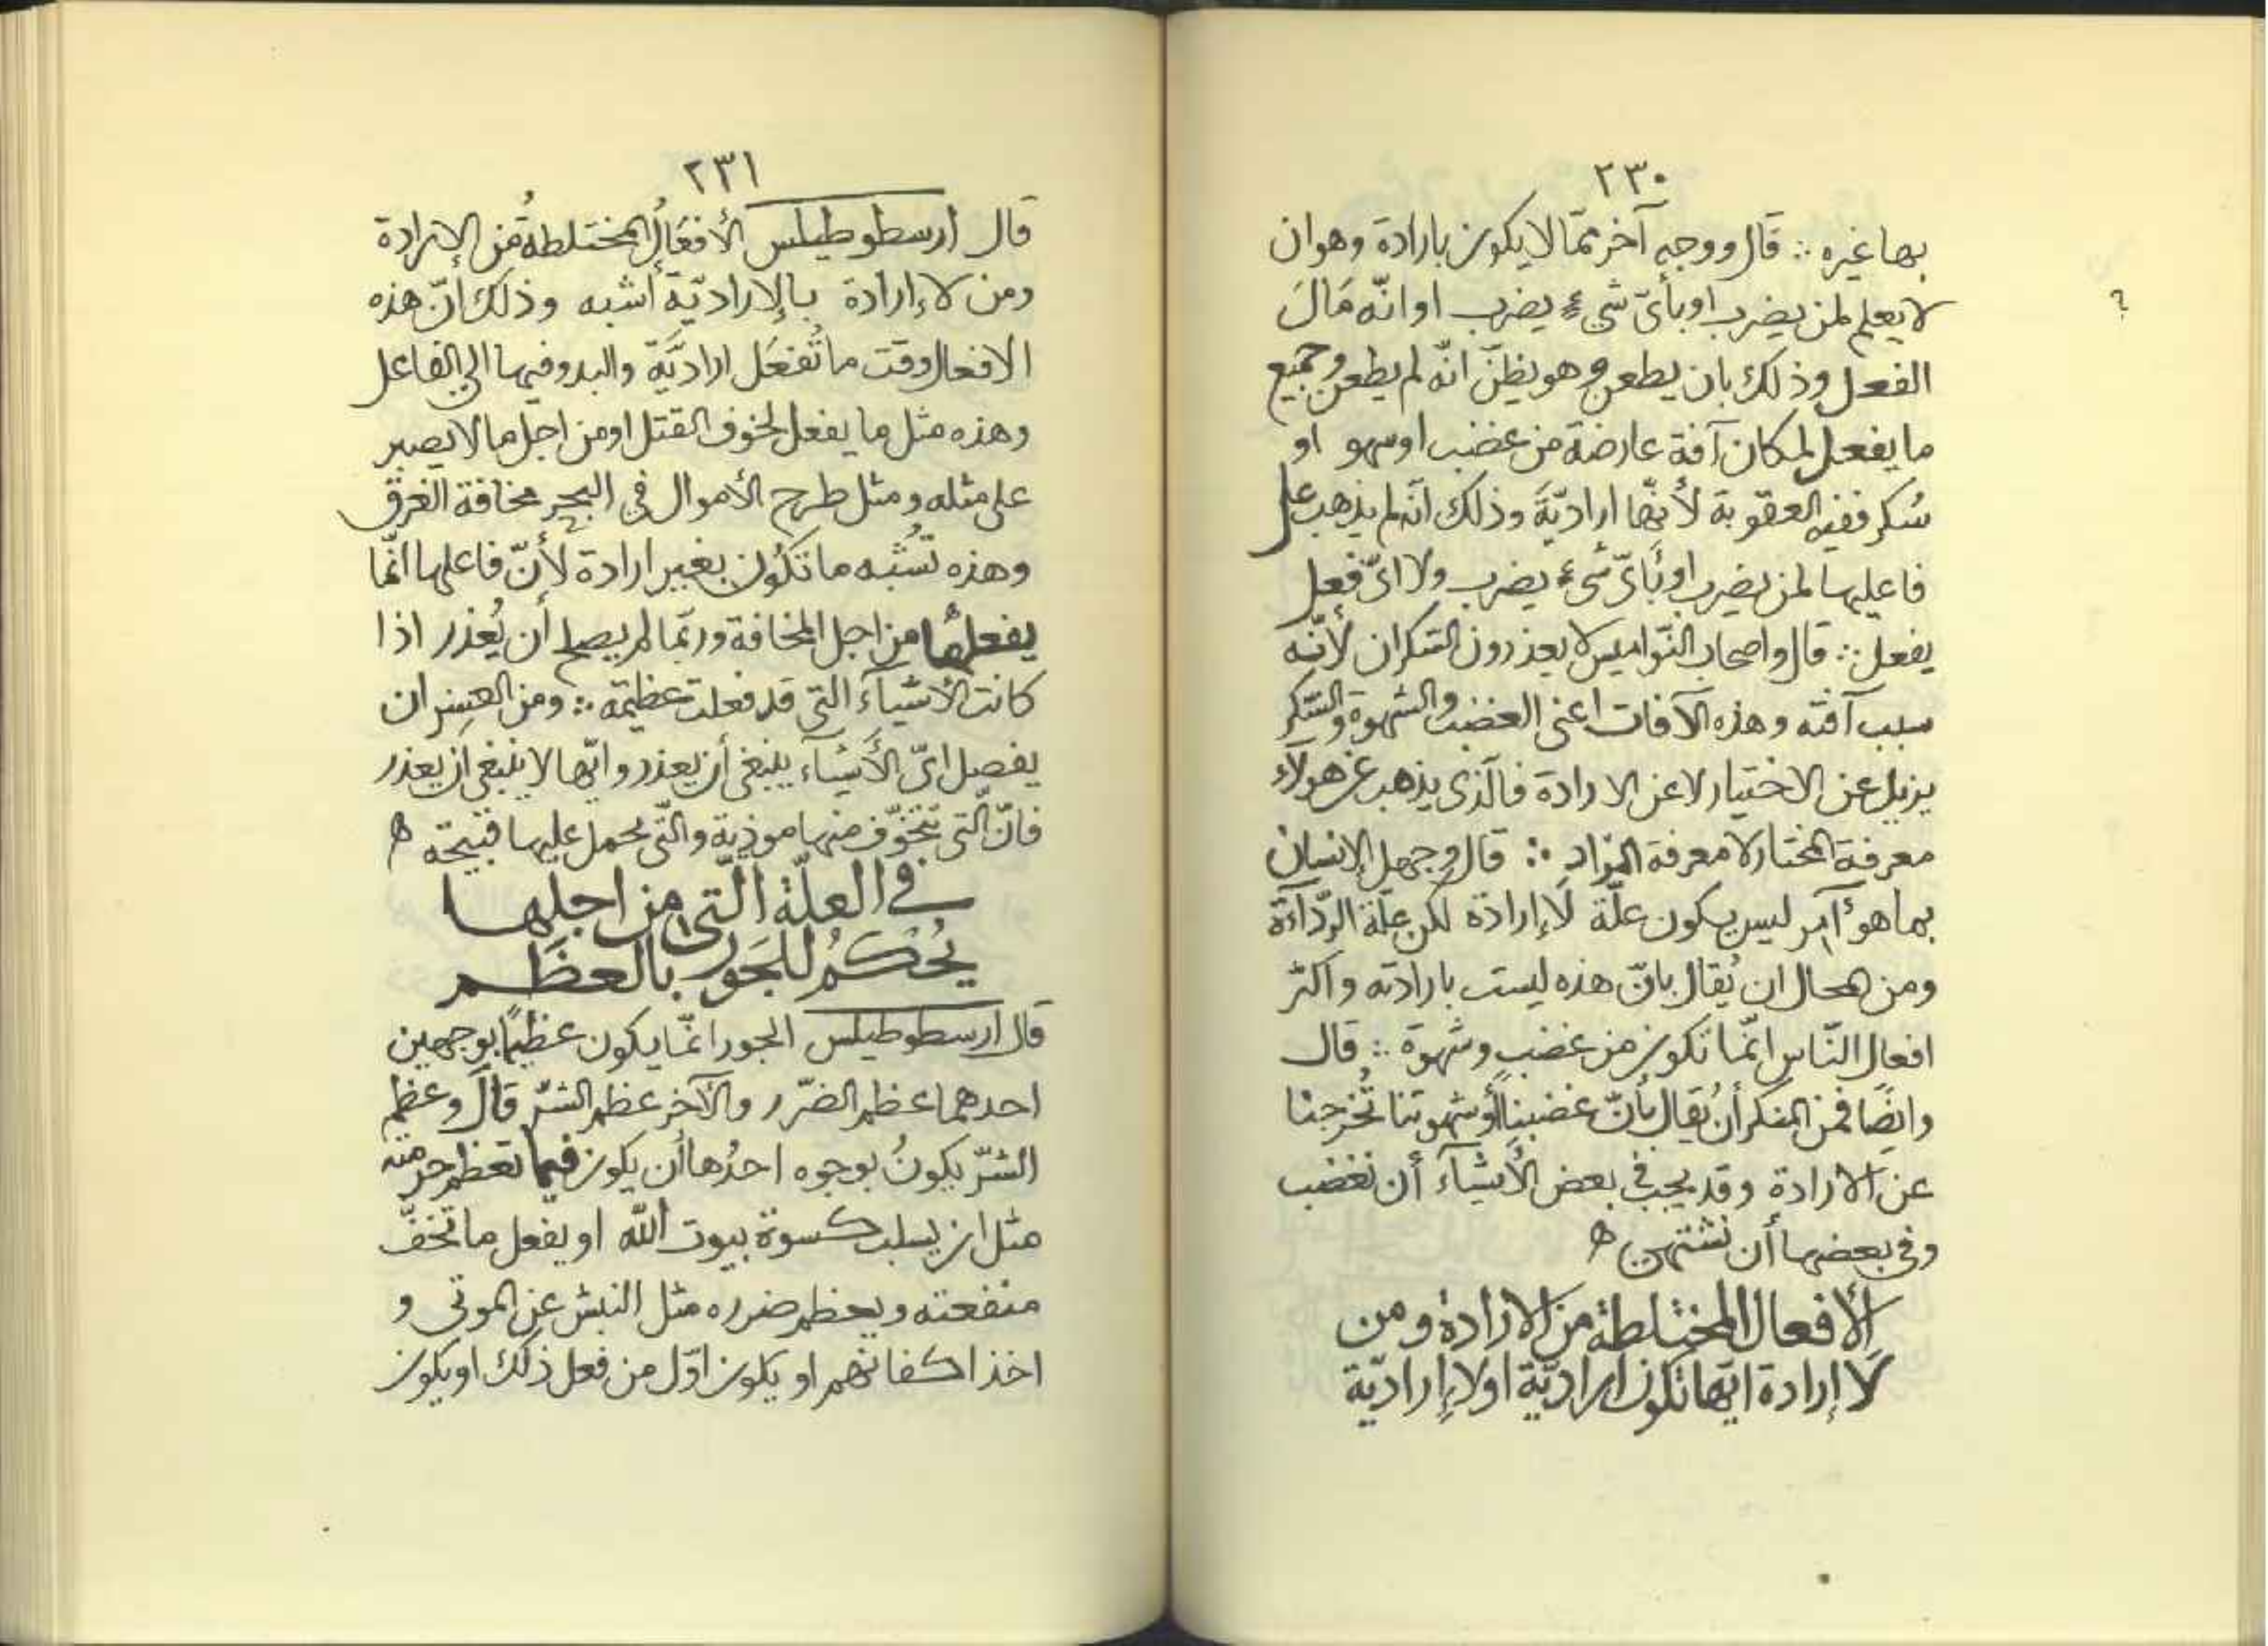 ٢٣٠
بها غيره ∴ قال ووجه آخر ممّا لا يكون بارادة وهو ان
لا يعلم لمن يضرب او بأىّ شىء يضرب او انّه مَالَ
الفعل وذلك بان يطعن وهو يظنّ انّه لم يطعن وجميع
ما يفعل لمكان آفة عارضة من غضب او سهو او
سُكر ففيه العقوبة لأنّها اراديّةَ وذلك انّه لم يذهب على
فاعليها لمن يضرب او بأىّ شىء يضرب ولا اىّ فعل
يفعل ∴ قال واصحاب النّواميس لا يعذرون السّكران لأنّه
سبب آفته وهذه الآفات اعنى الغضب والشهوة والسّكر
يزيل عن الاختيار لا عن الارادة فالّذى يذهب عن هولاء
معرفة المختار لا معرفة المراد ∴ قال وجهل الإنسان
بما هو آمر ليس يكون علّة لَا إرادة لكن علّة الرّداءة
ومن المحال ان يُقال بانّ هذه ليست بارادته واكثر
افعال النّاس انّما تكون من غضبٍ وشهوة ∴ قال
وايضًا فمن المنكر أن يُقال بأنّ غضبنا أو شهوتنا تُخرجنا
عن الارادة وقد يجب فى بعض الأشياء أن نغضب
وفى بعضها أن نشتهى ه
الأفعال المختلطة من الارادة ومن
لَا إرادة ايّها تكون اراديّة او لا إراديّة
؟
٢٣١
قال ارسطوطيلس الأفعَالُ المختلطةُ من الإرادة
ومن لا إرادة بالإراديّة أشبه وذلك انّ هذه
الافعال وقت ما تُفعَل اراديَّة والبدو فيها الى الفاعل
وهذه مثل ما يفعل لخوف القتل او من اجل ما لا يصبر
على مثله ومثل طرح الأموال فى البحر مخافة الغرق
وهذه تُشبه ما تكُون بغير ارادة لأنّ فاعلها انّما
يفعلها من اجل المخافة وربّما لم يصلح أن يُعذر اذا
كانت الأشيآء التى قد فعلت عظيمة ∴ ومن العسِر ان
يفصل اىّ الأشياء ينبغى أن يعذر وايّها لا ينبغى ان يعذر
فانّ الّتى يتخوّف منها موذية والّتى يحمل عليها قبيحة ه
فى العلّة الّتى من اجلها
يُحكمُ للجَور بالعظَم
قال ارسطوطيلس الجور انّما يكون عظيمًا بوجهين
احدهما عظم الضّرر والآخر عظم الشرّ قال وعظم
الشرّ يكونُ بوجوه احدُها أن يكون فيما تعظم حرمته
مثل ان يسلب كسوة بيوت الله او يفعل ما تخفّ
منفعته ويعظم ضرره مثل النبش عن الموتى و
اخذ اكفانهم او يكون اوّل من فعل ذلك او يكون